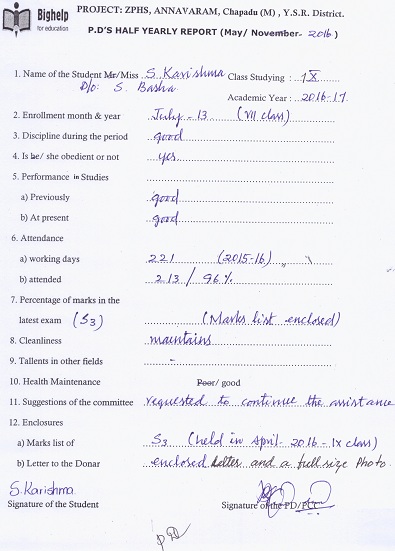 Bighelp
for education
PROJECT: ZPHS, ANNAVARAM, Chapadu (M) , Y.S.R. District.
P.D'S HALF YEARLY REPORT (May/ November- 2016 )
1. Name of the Student Mr/Miss S. Karishma Class Studying : IX
D/o: S. Basha
Academic Year : 2016-17
2. Enrollment month & year July - 13 (VII class)
3. Discipline during the period good
4. Is he/ she obedient or not yes
5. Performance in Studies
a) Previously good
b) At present good
6. Attendance
a) working days 221 (2015-16)
b) attended 213 / 96%
7. Percentage of marks in the
latest exam (S3) (Marks list enclosed)
8. Cleanliness maintains
9. Tallents in other fields -
10. Health Maintenance Poor/ good
11. Suggestions of the committee requested to continue the assistance
12. Enclosures
a) Marks list of S3 (held in April - 2016 - IX class)
b) Letter to the Donar enclosed letter and a full size Photo.
S. Karishma
Signature of the Student Signature of the PD/PCC
PD